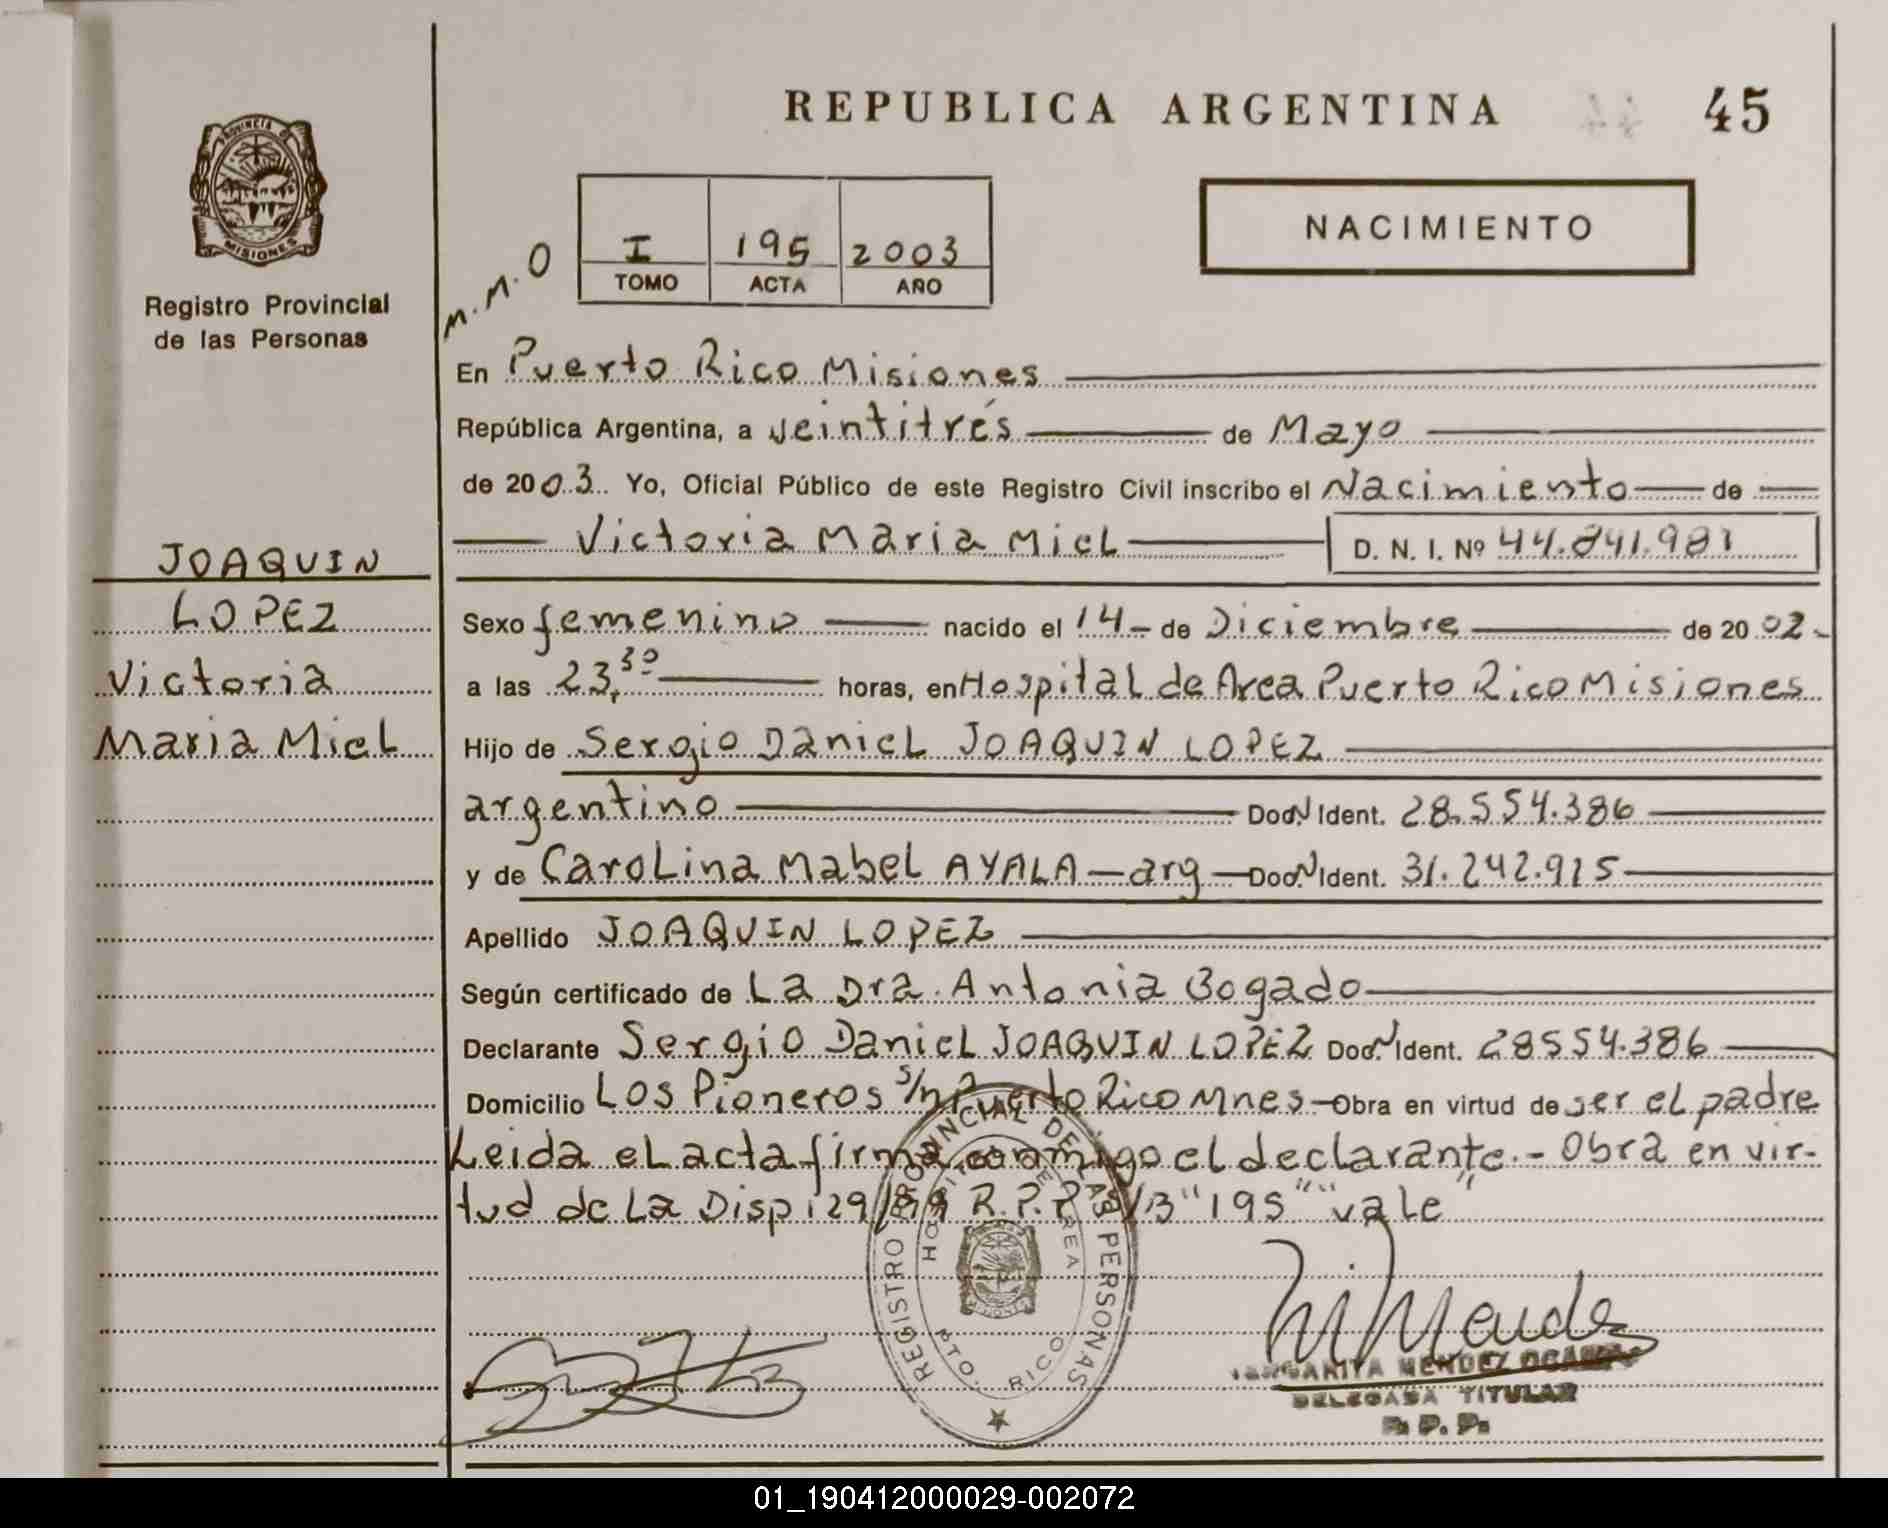 REPUBLICA ARGENTINA
45
PROVINCIA DE
MISIONES
Registro Provincial
de las Personas
M.M.O
I 195 2003
TOMO ACTA AÑO
NACIMIENTO
En Puerto Rico Misiones
República Argentina, a veintitrés de Mayo
de 2003. Yo, Oficial Público de este Registro Civil inscribo el Nacimiento de
Victoria Maria Micl D. N. I. Nº 44.841.981
JOAQUIN
LOPEZ
Victoria
Maria Micl
Sexo femenino nacido el 14 de Diciembre de 2002
a las 23,30 horas, en Hospital de Area Puerto Rico Misiones
Hijo de Sergio Daniel JOAQUIN LOPEZ
argentino Doc. N Ident. 28.554.386
y de Carolina Mabel AYALA - arg - Doc. N Ident. 31.242.915
Apellido JOAQUIN LOPEZ
Según certificado de La Dra. Antonia Bogado
Declarante Sergio Daniel JOAQUIN LOPEZ Doc. N Ident. 28554.386
Domicilio Los Pioneros s/n Puerto Rico Mnes - Obra en virtud de ser el padre
Leida el acta firma conmigo el declarante. - Obra en vir-
tud de La Disp 129/89 R.P.P. S/B "195" "vale"
REGISTRO PROVINCIAL DE LAS PERSONAS
HOSPITAL DE AREA
PTO. RICO
MARGARITA MENDEZ OCAMPO
DELEGADA TITULAR
R. P. P.
01_190412000029-002072